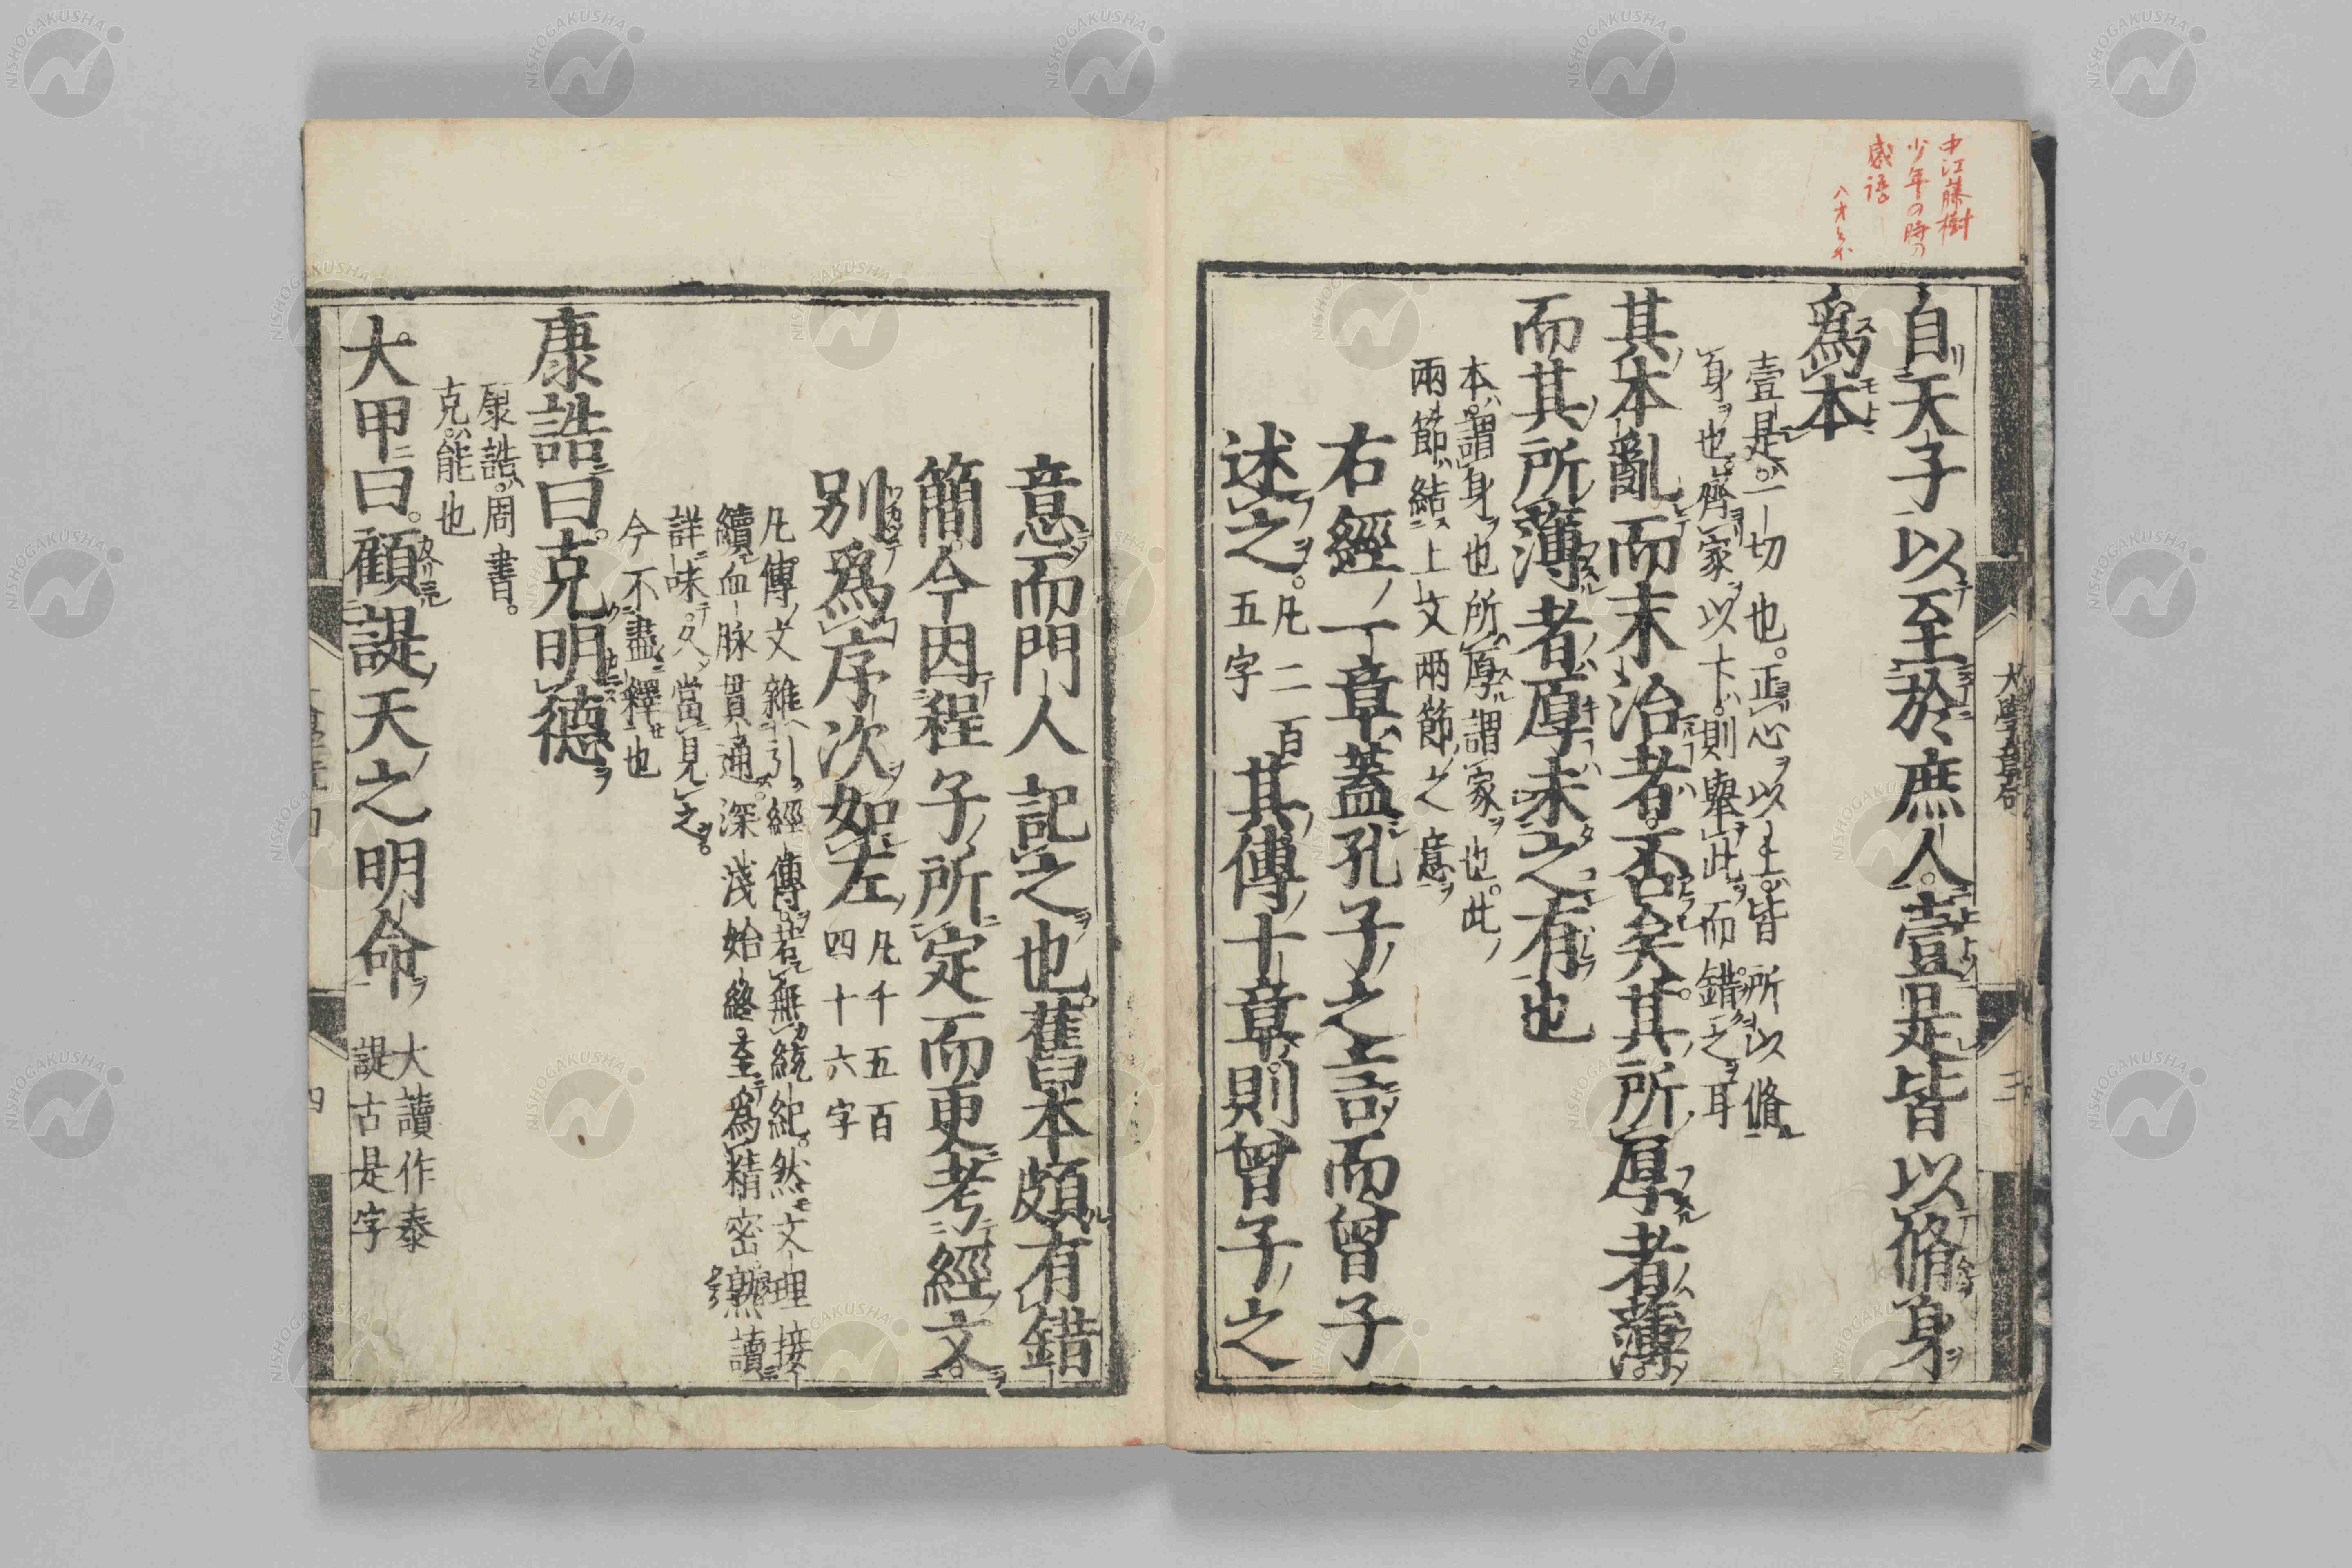 中江藤樹
少年の時の
感語
自天子以至於庶人壹是皆以脩身
爲本
壹是一切也正心以上皆所以脩
身也齊家以下則舉此而錯之耳
其本亂而末治者否矣其所厚者薄
而其所薄者厚未之有也
本謂身也所厚謂家也此
兩節結上文兩節之意
右經一章蓋孔子之言而曾子
述之凡二百五字其傳十章則曾子之
大學章句 三
意而門人記之也舊本頗有錯
簡今因程子所定而更考經文
別爲序次如左凡千五百四十六字
凡傳文雜引經傳若無統紀然文理接
續血脉貫通深淺始終至爲精密熟讀
詳味久當見之
今不盡釋也
康誥曰克明德
康誥周書
克能也
大甲曰顧諟天之明命大讀作泰諟古是字
四
NISHOGAKUSHA